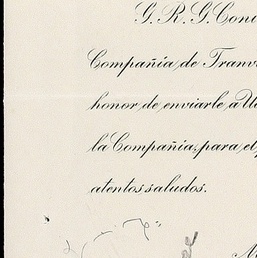 G. R. G. Con
Compañía de Tranv
honor de enviarle á U
la Compañía, para el
atentos saludos.